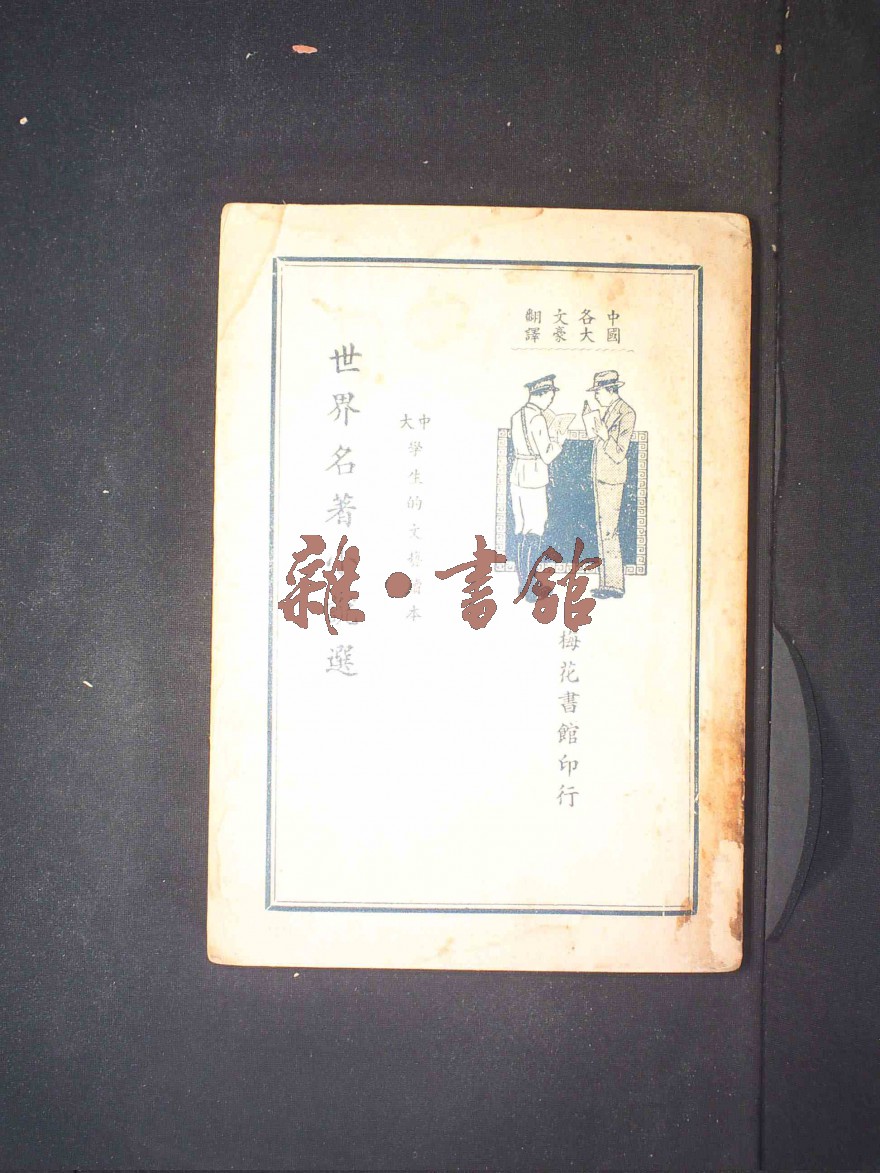 中國各大文豪翻譯
梅花書館印行
中大學生的文藝讀本
世界名著選
雜·書館